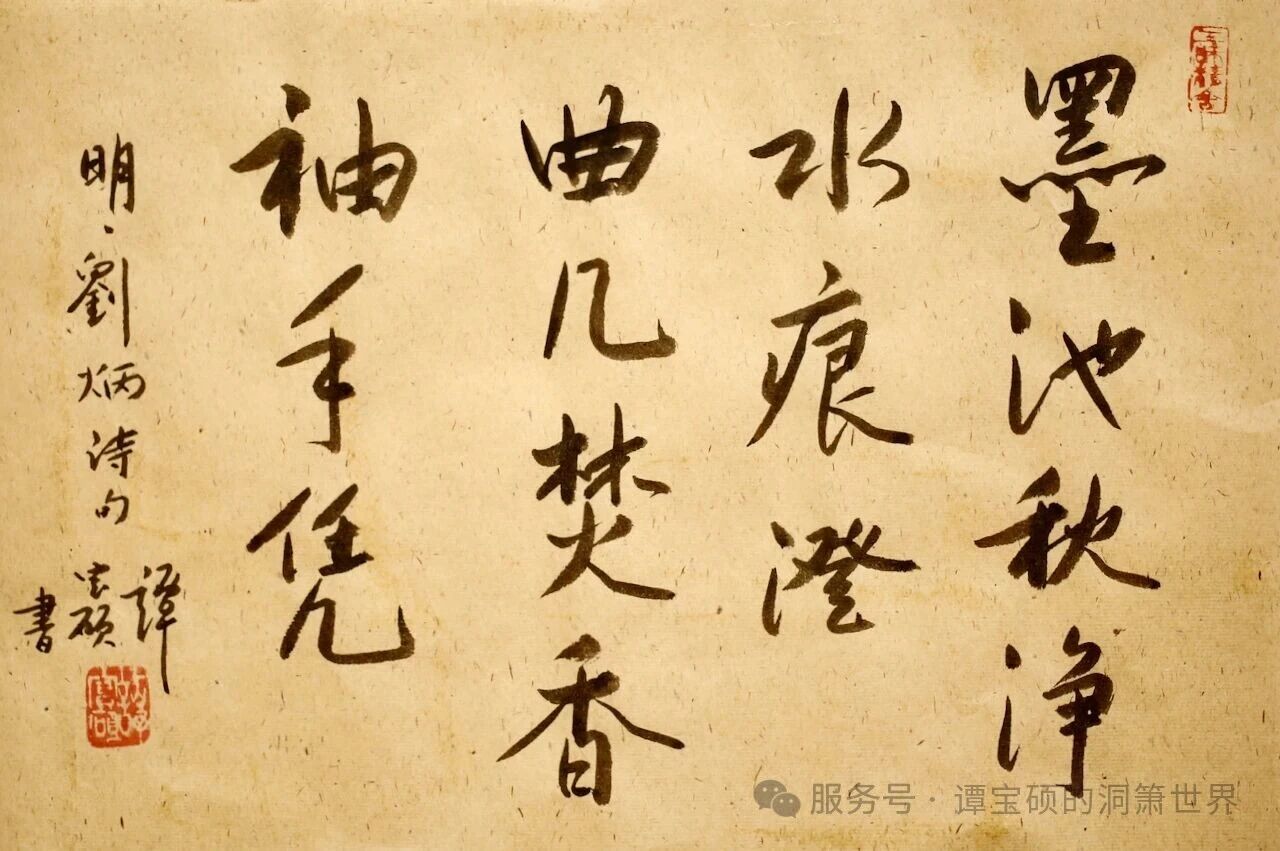 墨池秋浄
水痕澄
曲几焚香
袖手凭
明、劉炳诗句
譚宝硕
書
服务号 · 谭宝硕的洞箫世界